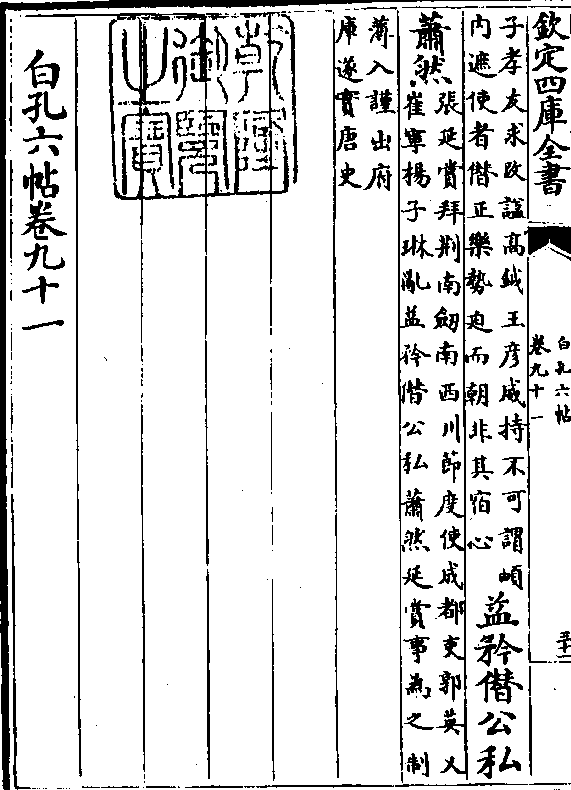 欽定四庫全書
白孔六帖
卷九十一
子孝友求改諡髙鉞王彦威持不可謂頔
内遮使者僭正樂勢迫而朝非其宿心
益矜僭公私
蕭然
張延賞拜荆南劔南西川節度使成都吏郭英乂
崔寧揚子琳亂益矜僭公私蕭然延賞事為之制
薄入謹出府
庫遂實唐史
乾隆御覽之寶
白孔六帖卷九十一